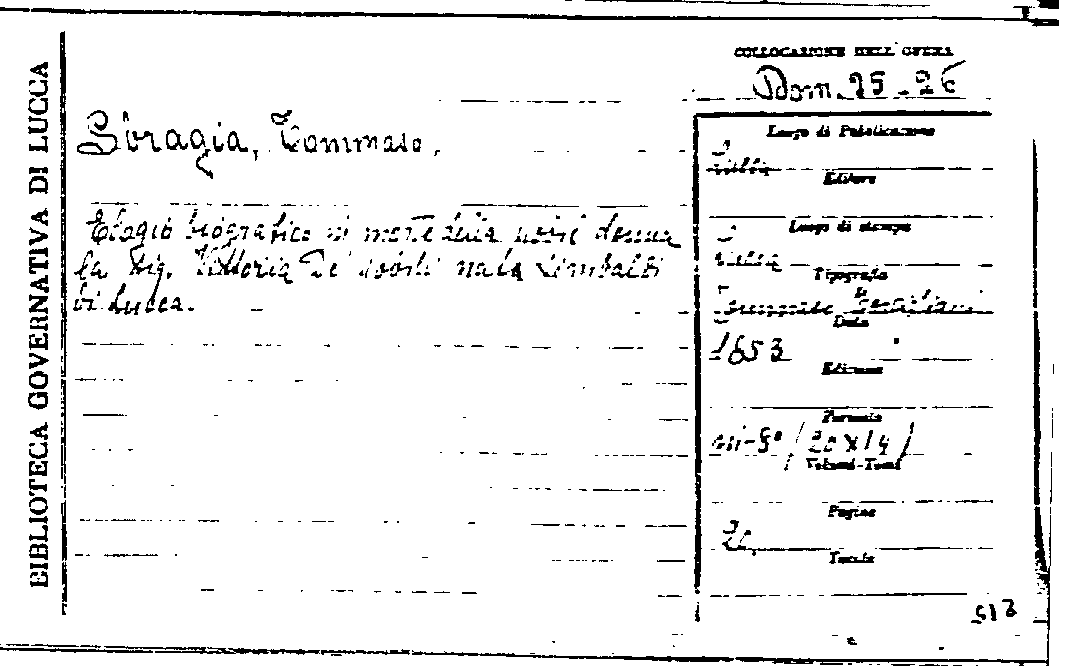 BIBLIOTECA GOVERNATIVA DI LUCCA
COLLOCAZIONE DELL'OPERA
Dom. 25.26
Soragia, Tommaso.
Elogio biografico in morte della nobil donna
la Sig. Vittoria De' Nobili nata Simbaldi
di Lucca.
Luogo di Pubblicazione
Editore
Luogo di stampa
Tipografia
Tommaso
Data
1853
Edizione
Formato
in-8° (20 x 14)
Volumi-Tomi
Pagine
Tavole